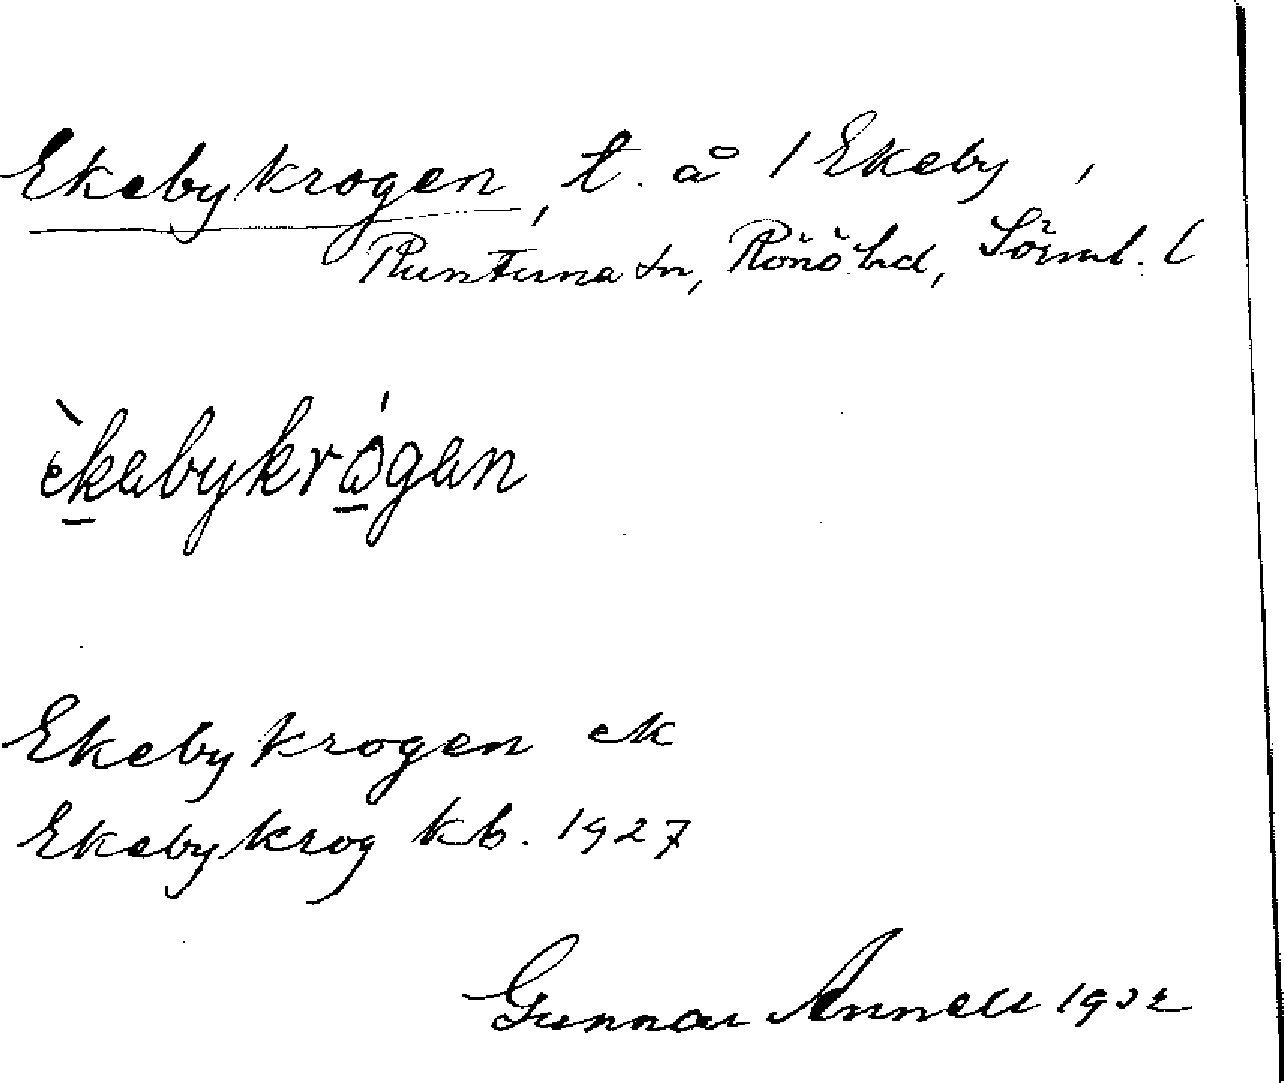 Ekebykrogen, t. å 1 Ekeby,
Runtuna sn, Rönö hd, Sörml. l
èkabykrógan
Ekebykrogen ek
Ekebykrog kb. 1927
Gunnar Annell 1932